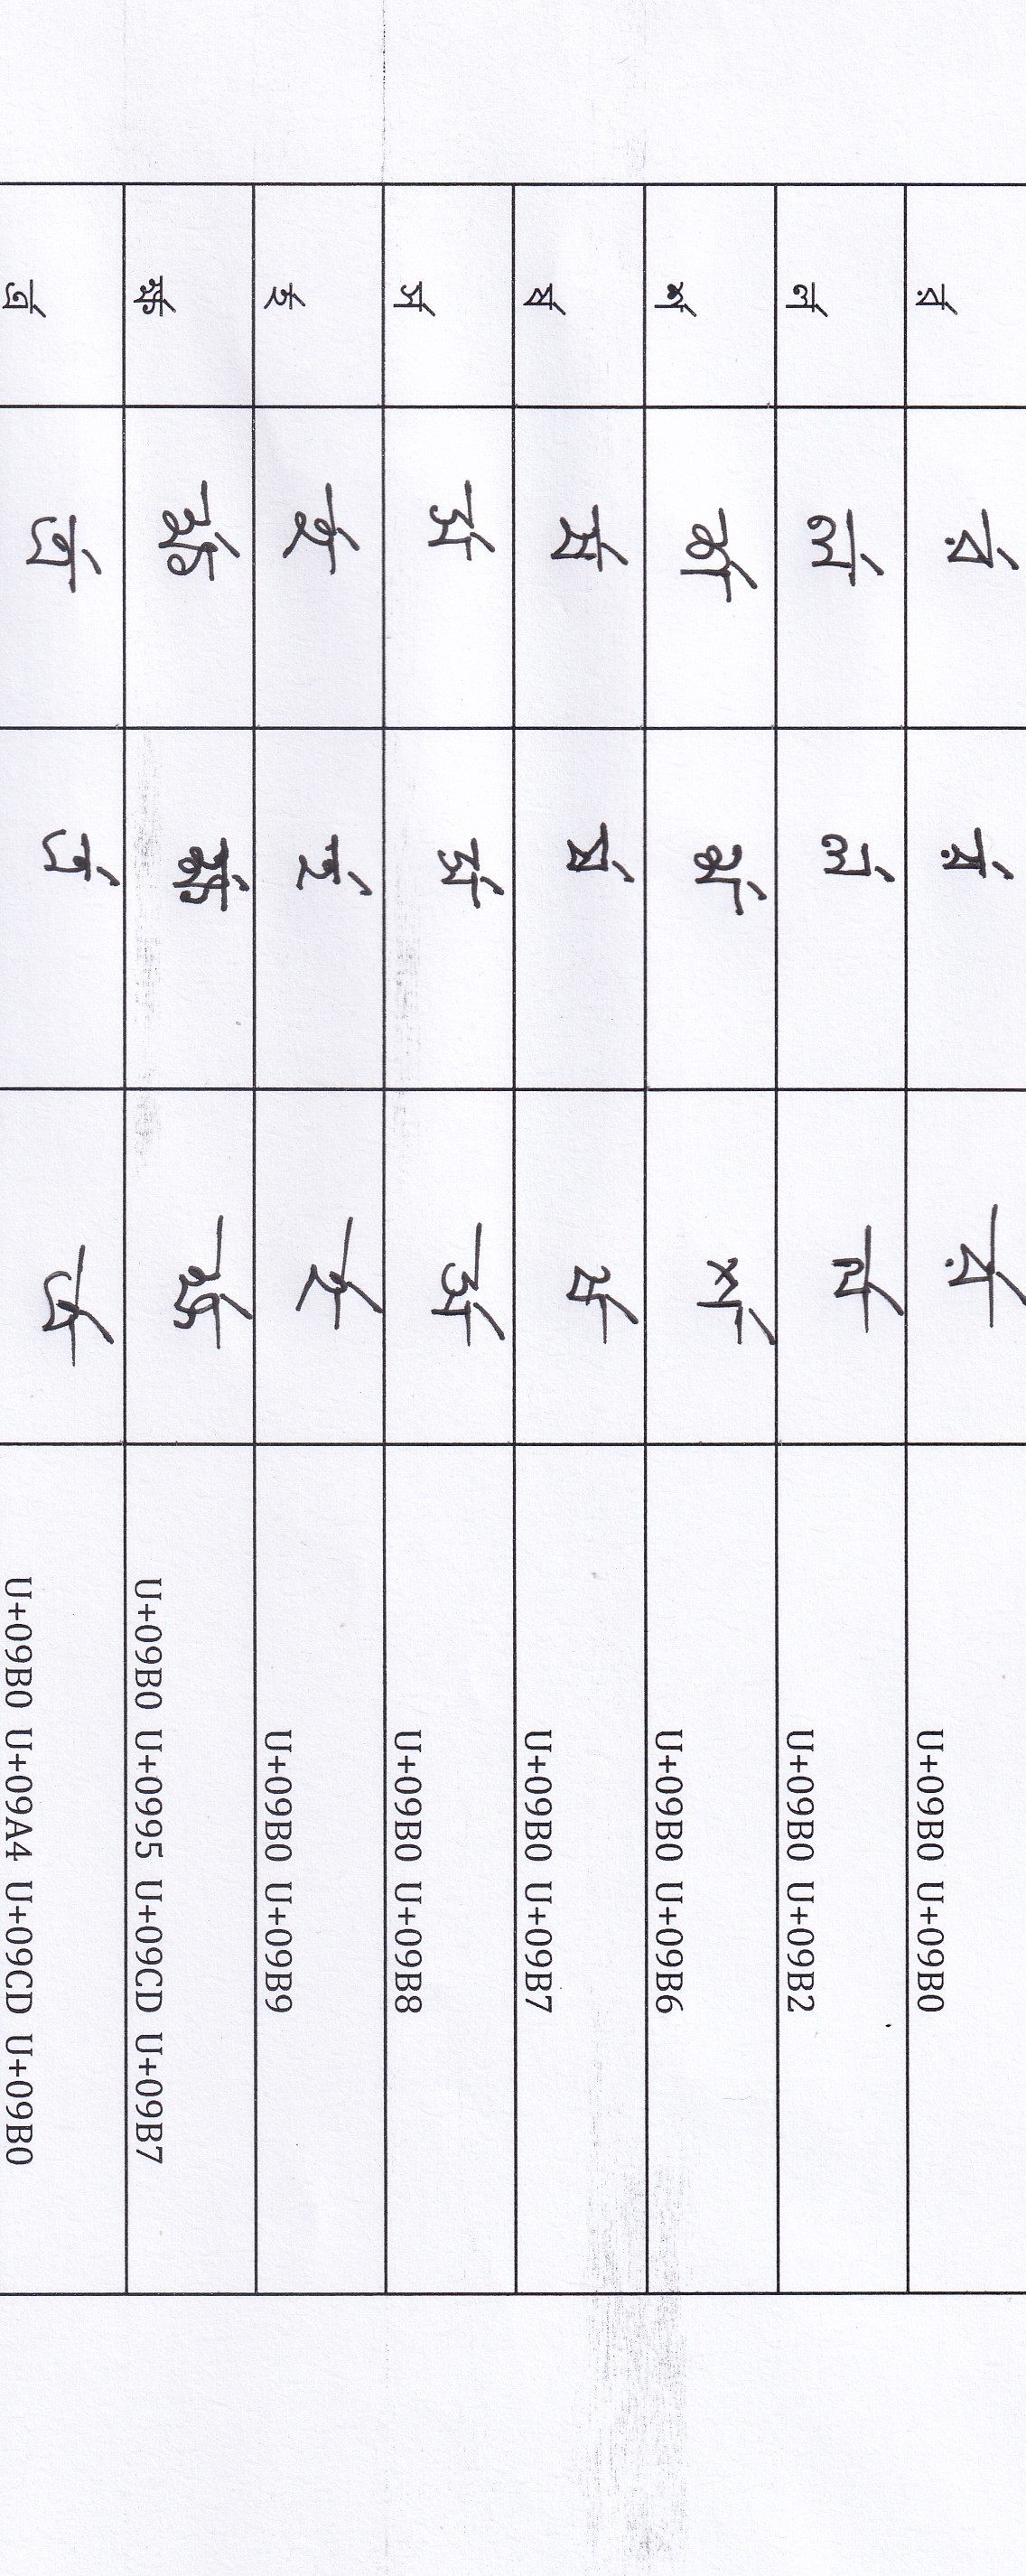 র্র র্র র্র র্র U+09B0 U+09B0
র্ল র্ল র্ল র্ল U+09B0 U+09B2
র্শ র্শ র্শ র্শ U+09B0 U+09B6
র্ষ র্ষ র্ষ র্ষ U+09B0 U+09B7
র্স র্স র্স র্স U+09B0 U+09B8
র্হ র্হ র্হ র্হ U+09B0 U+09B9
র্ক্ষ র্ক্ষ র্ক্ষ র্ক্ষ U+09B0 U+0995 U+09CD U+09B7
র্ত্র র্ত্র র্ত্র র্ত্র U+09B0 U+09A4 U+09CD U+09B0